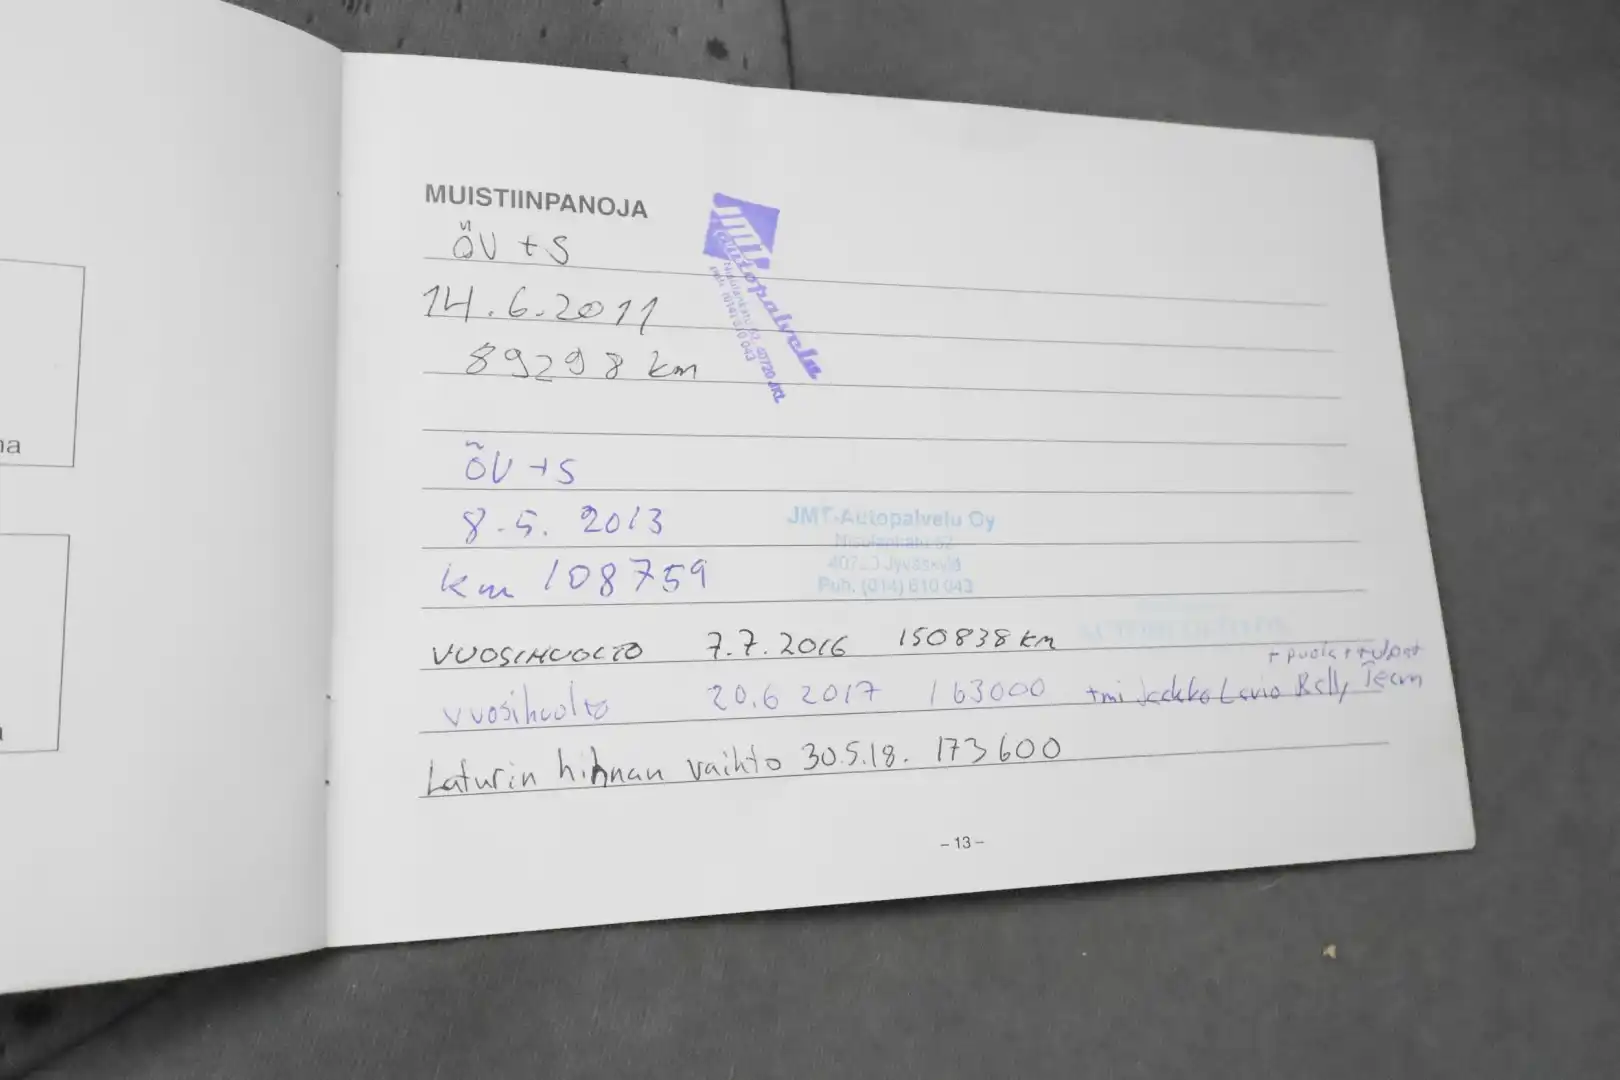 na
MUISTIINPANOJA
ÖV + S
14.6.2011
89298 km
JMT
Autopalvelu
Nisulankatu 52, 40720 JKL
puh. (014) 610 043
ÖV + S
8.5. 2013
km 108759
JMT-Autopalvelu Oy
Nisulankatu 52
Jyväskylä
Puh. (014) 610 043
VUOSIHUOLTO 7.7.2016 150838 km
+ puola + tulpat
vuosihuolto 20.6 2017 163000 tmi Team
Laturin hihnan vaihto 30.5.18. 173600
- 13 -